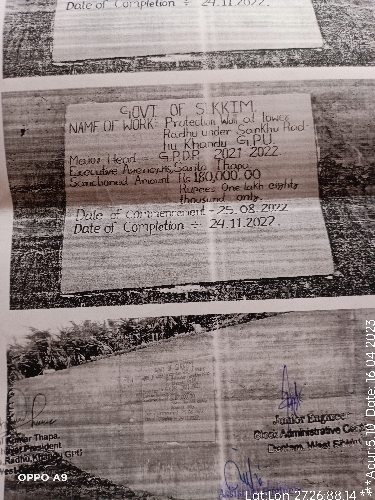 Date of Completion ÷ 24.11.2022.
GOVT OF SIKKIM
NAME OF WORK: Protection Wall at lower
Radhu under Sankhu Rad-
hu Khandu G.P.U.
Major Head G.P.D.P. 2021-2022
Executive Agency: Smt. Santa Thapa
Sanctioned Amount Rs 180,000.00
Rupees One lakh eighty
thousand only.
Date of commencement - 25.08.2022
Date of Completion ÷ 24.11.2022.
Thapa,
President
Radhu Khandu GPU
Junior Engineer
Block Administrative Centre
Dentam, West Sikkim
OPPO A9
Lat:Lon 27.26:88.14
***Acur:5.10 Date:16.04.2023